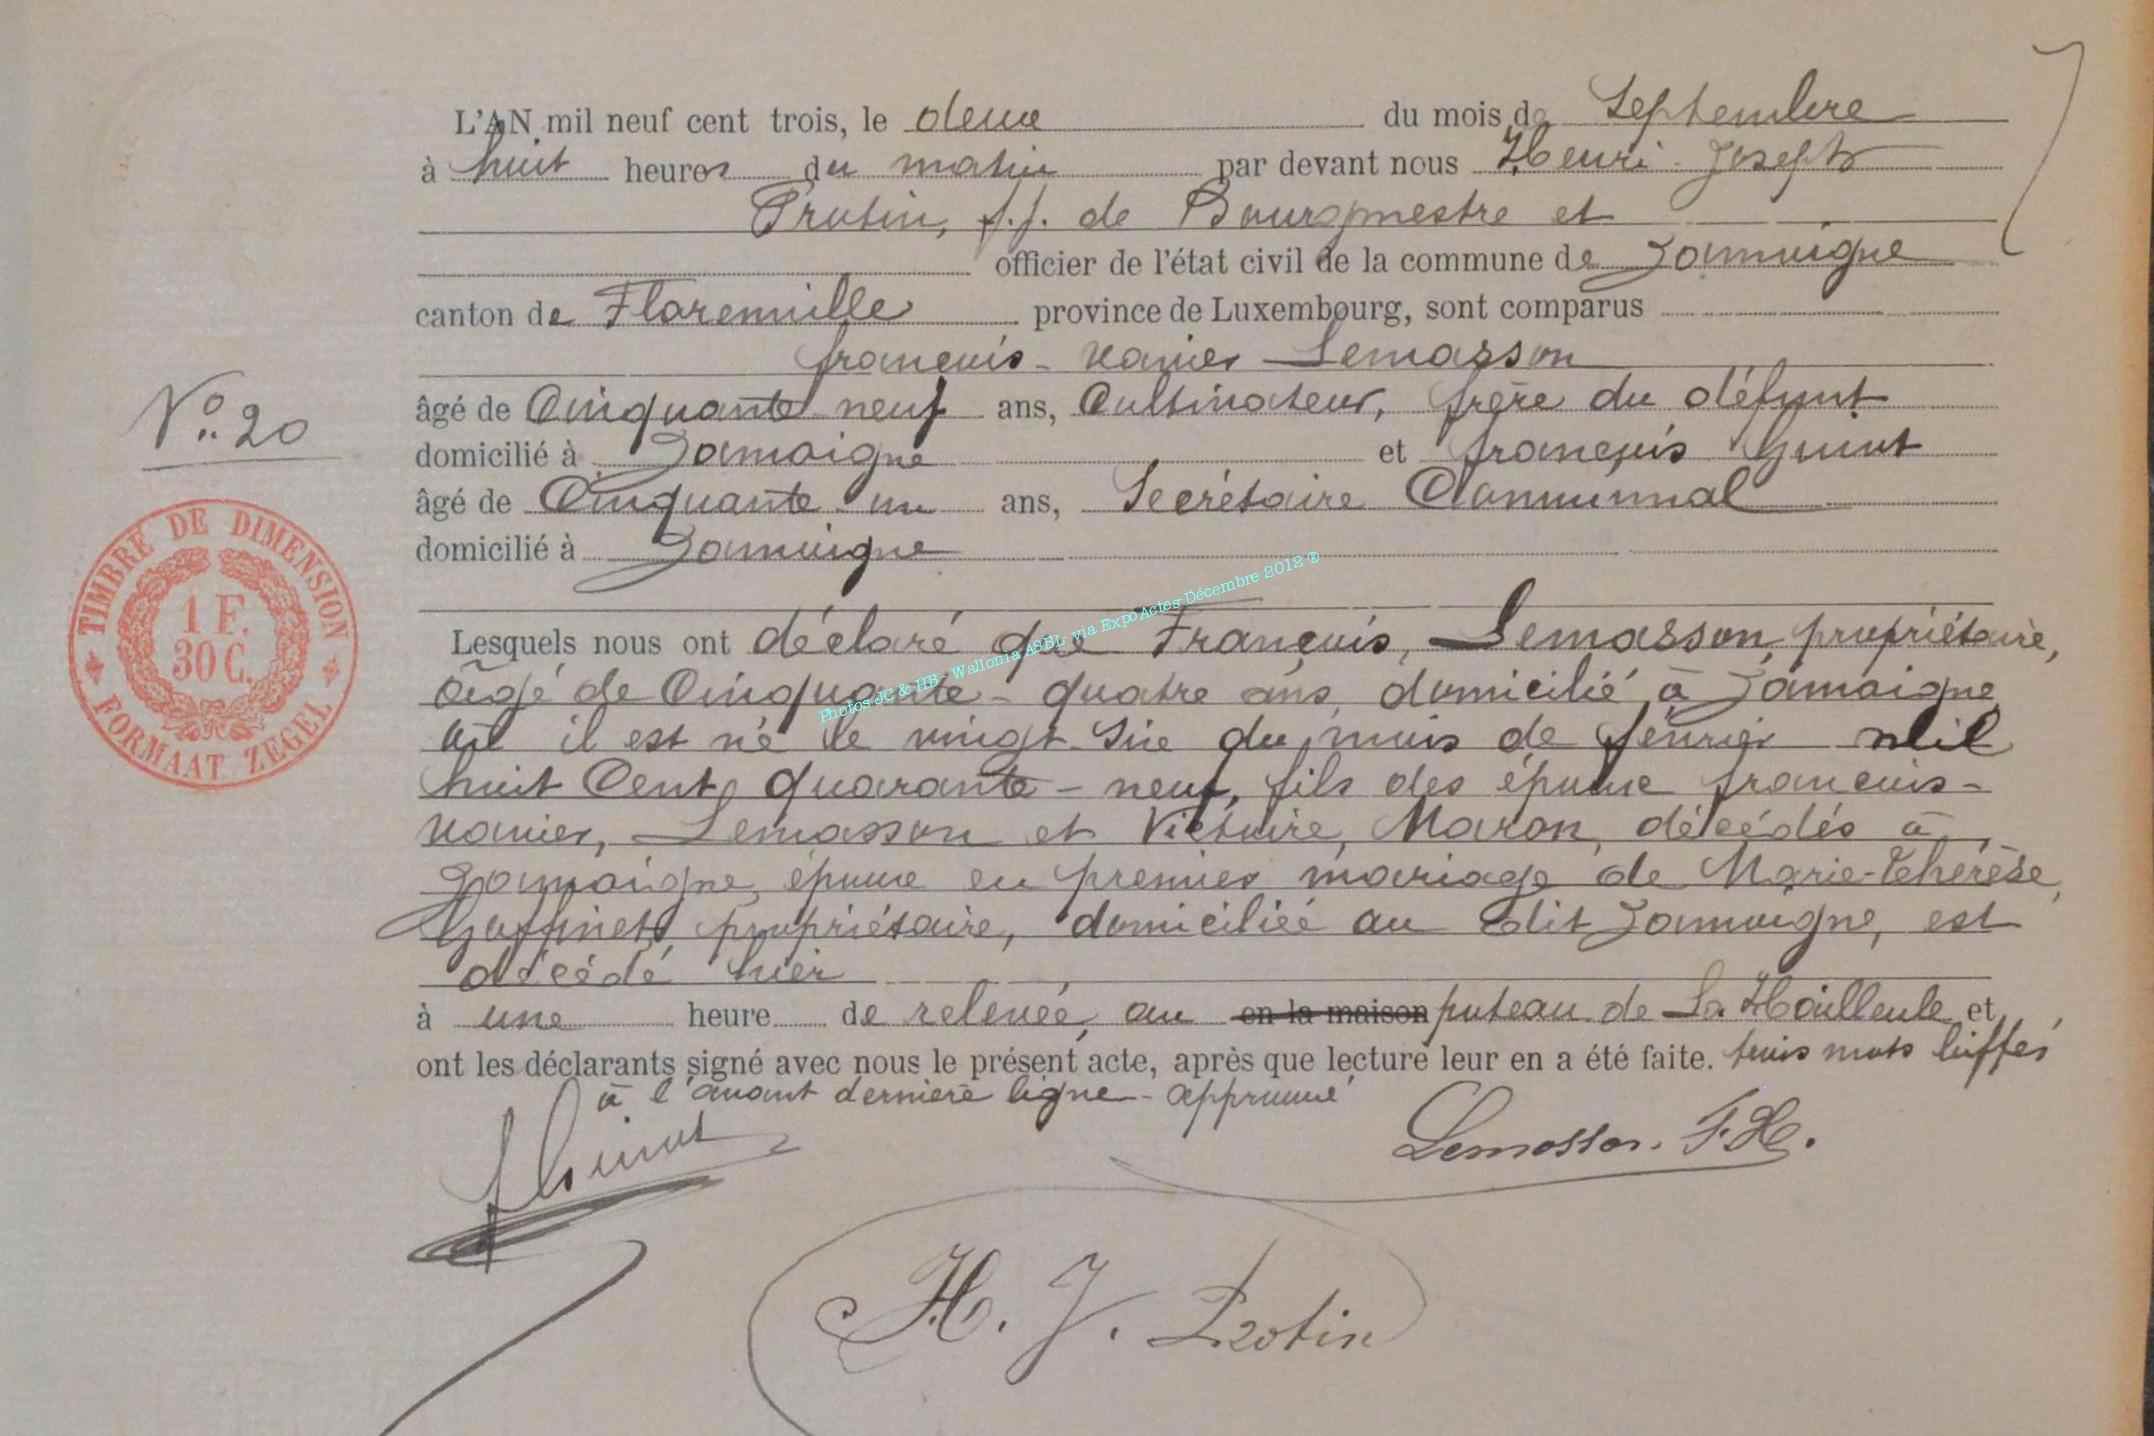 L'AN mil neuf cent trois, le deux du mois de Septembre
à huit heures du matin par devant nous Henri Joseph
Protin, f.f. de Bourgmestre et
officier de l'état civil de la commune de Jamoigne
canton de Florenville province de Luxembourg, sont comparus
françois-xavier Lemasson
N° 20
âgé de Cinquante neuf ans, Cultivateur, frère du défunt
domicilié à Jamoigne et françois Guiot
âgé de Cinquante un ans, Secrétaire Communal
domicilié à Jamoigne
TIMBRE DE DIMENSION
1 F.
30 C.
FORMAAT ZEGEL
Photos JC & HB - Wallonia ASBL via ExpoActes Décembre 2012 ®
Lesquels nous ont déclaré que François, Lemasson, propriétaire,
âgé de Cinquante-quatre ans, domicilié à Jamoigne
où il est né le vingt-six du mois de février mil
huit Cent quarante-neuf, fils des époux françois-
xavier, Lemasson et Victoire, Maron, décédés à
Jamoigne, époux en premier mariage de Marie-Thérèse,
Goffinet, propriétaire, domiciliée au dit Jamoigne, est
décédé hier
à une heure de relevée, au en la maison poteau de La Hailleule et
ont les déclarants signé avec nous le présent acte, après que lecture leur en a été faite. trois mots biffés
à l'avant dernière ligne - approuvé
f Guiot
Lemasson. F.X.
H. J. Protin